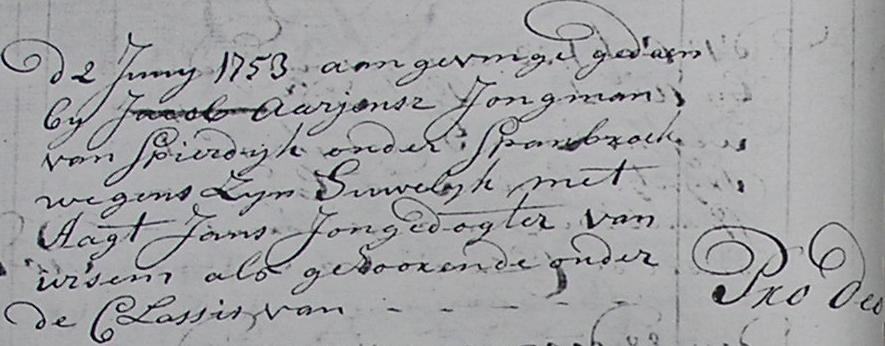 d 2 Juny 1753 aangevinge gedaen
by Jacob Aarjensz Jongman
van Spierdyk onder Spanbroek
wegens Zyn Huwelyk met
Aagt Jans Jongedogter van
ursem als gehoorende onder
de Classis van - - - - -
Pro deo